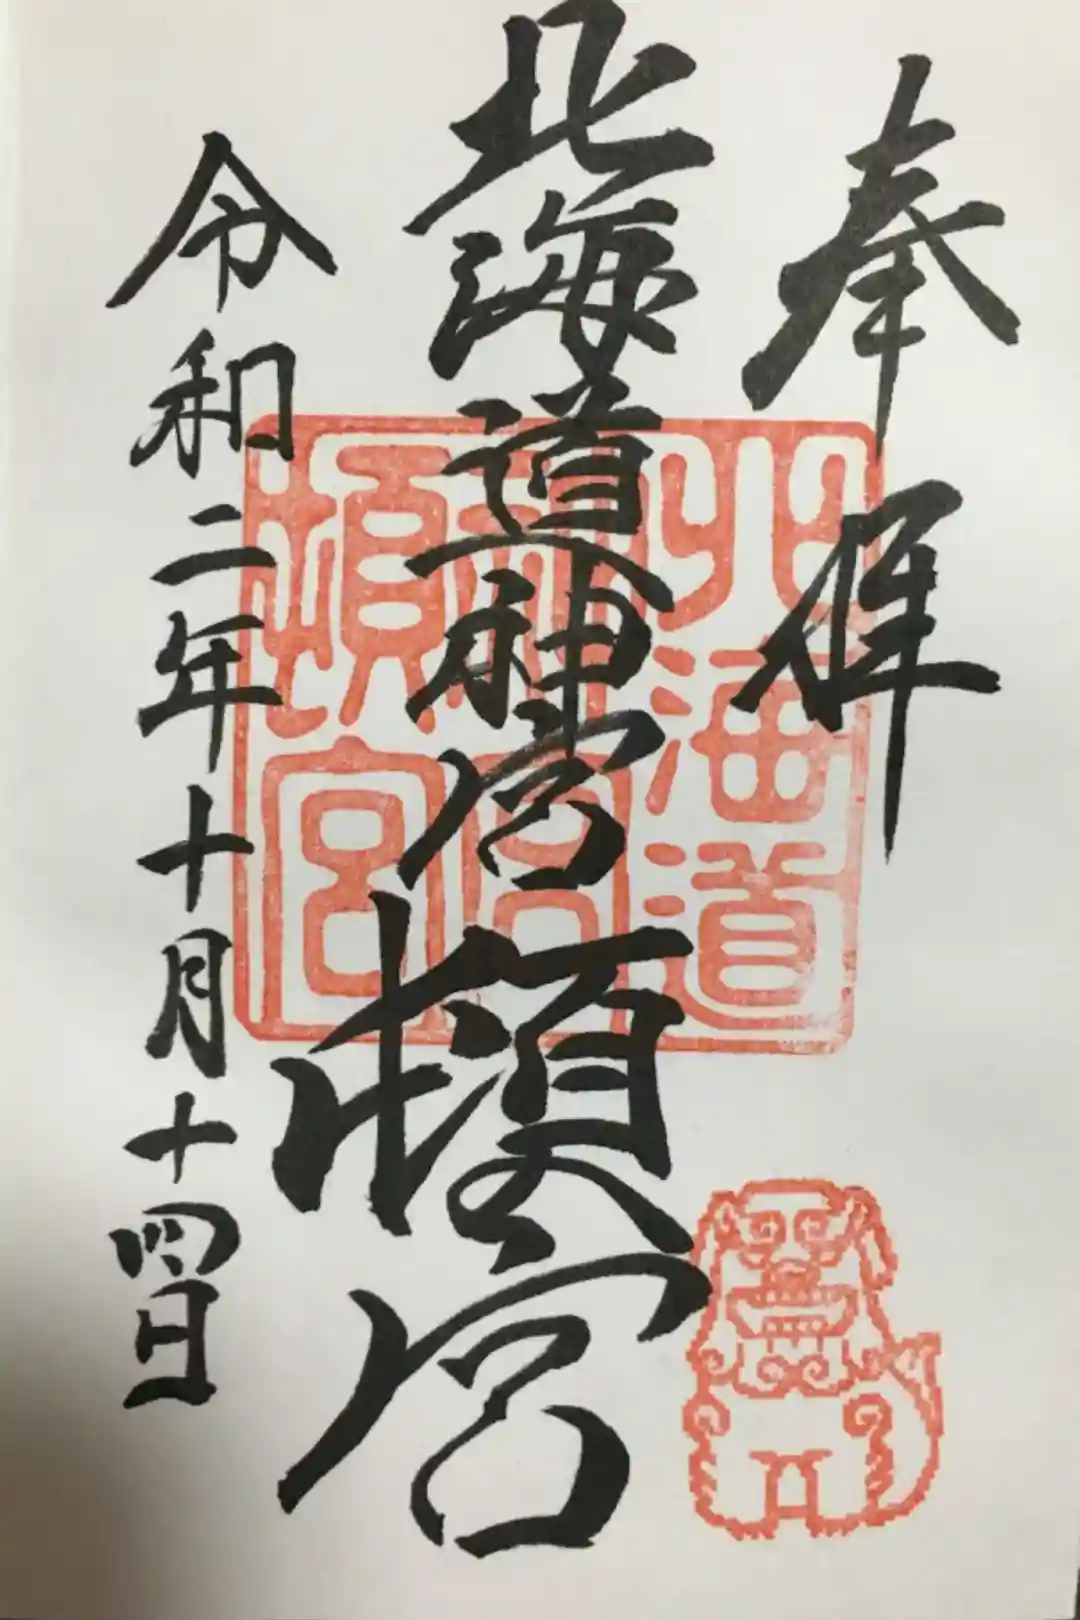 奉拝
北海道神宮頓宮
令和二年十月十四日
北海道
神宮
頓宮